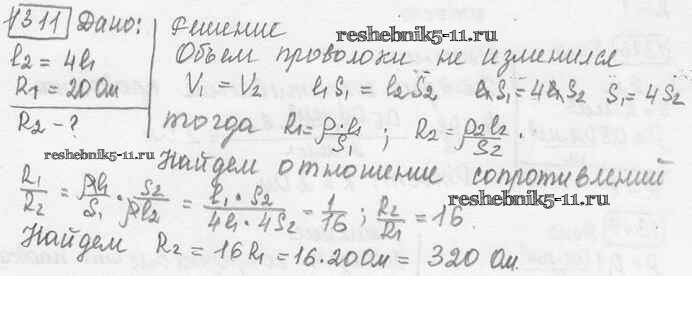 1311 Дано: Решение
reshebnik5-11.ru
l2 = 4l1 Объем проволоки не изменился
R1 = 20 Ом V1 = V2 l1S1 = l2S2 l1S1 = 4l1S2 S1 = 4S2
R2 - ? тогда R1 = ρ·l1/S1 ; R2 = ρ2l2/S2 .
reshebnik5-11.ru
Найдем отношение сопротивлений
R1/R2 = ρl1/S1 · S2/ρl2 = l1·S2/4l1·4S2 = 1/16 ; R2/R1 = 16
reshebnik5-11.ru
Найдем R2 = 16R1 = 16·20 Ом = 320 Ом